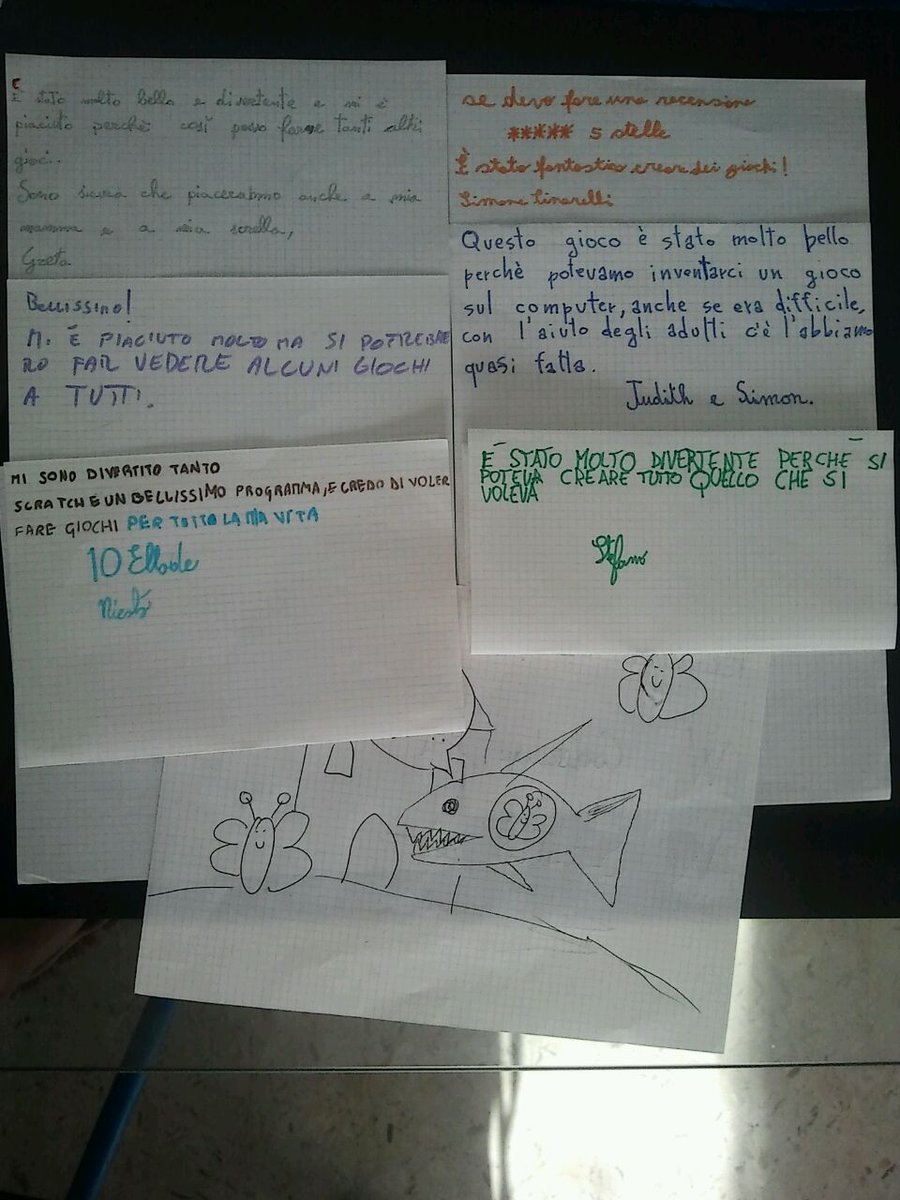 È stato molto bello e divertente e mi è
piaciuto perchè così posso farne tanti altri
gioci.
Sono sicura che piacerabno anche a mia
mamma e a mia sorella,
Greta
se devo fare una recensione
***** 5 stelle
È stato fantastico creare dei giochi!
Simone Linarelli
Bellissimo!
Mi È PIACIUTO MOLTO MA SI POTREBBE
RO FAR VEDERE ALCUNI GIOCHI
A TUTTI.
Questo gioco è stato molto bello
perchè potevamo inventarci un gioco
sul computer, anche se era difficile,
con l'aiuto degli adulti c'è l'abbiamo
quasi fatta.
Judith e Simon.
MI SONO DIVERTITO TANTO
SCRATCH E UN BELLISSIMO PROGRAMMA, E CREDO DI VOLER
FARE GIOCHI PER TUTTO LA MIA VITA
10 E Lode
È STATO MOLTO DIVERTENTE PERCHE SI
POTEVA CREARE TUTTO QUELLO CHE SI
VOLEVA
Stefano